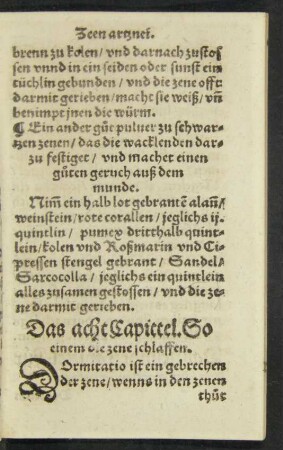 Zeen artznei.
brenn zu kolen / vnd darnach zustos⸗
sen vnnd in ein seiden oder sunst ein
tüchlin gebunden / vnd die zene offt
darmit gerieben / macht sie weiß / vñ
benimpt jnen die würm.
¶ Ein ander gůt puluer zu schwar⸗
tzen zenen / das die wacklenden dar⸗
zu festiget / vnd machet einen
gůten geruch auß dem
munde.
Nim̃ ein halb lot gebrantẽ alaũ /
weinstein / rote corallen / jeglichs ij.
quintlin / pumex dritthalb quint⸗
lein / kolen vnd Roßmarin vnd Ci⸗
pressen stengel gebrant / Sandel /
Sarcocolla / jeglichs ein quintlein
alles zusamen gestossen / vnd die ze⸗
ne darmit gerieben.
Das acht Capittel. So
einem die zene schlaffen.
Dormitatio ist ein gebrechen
der zene / wenns in den zenen
thůt